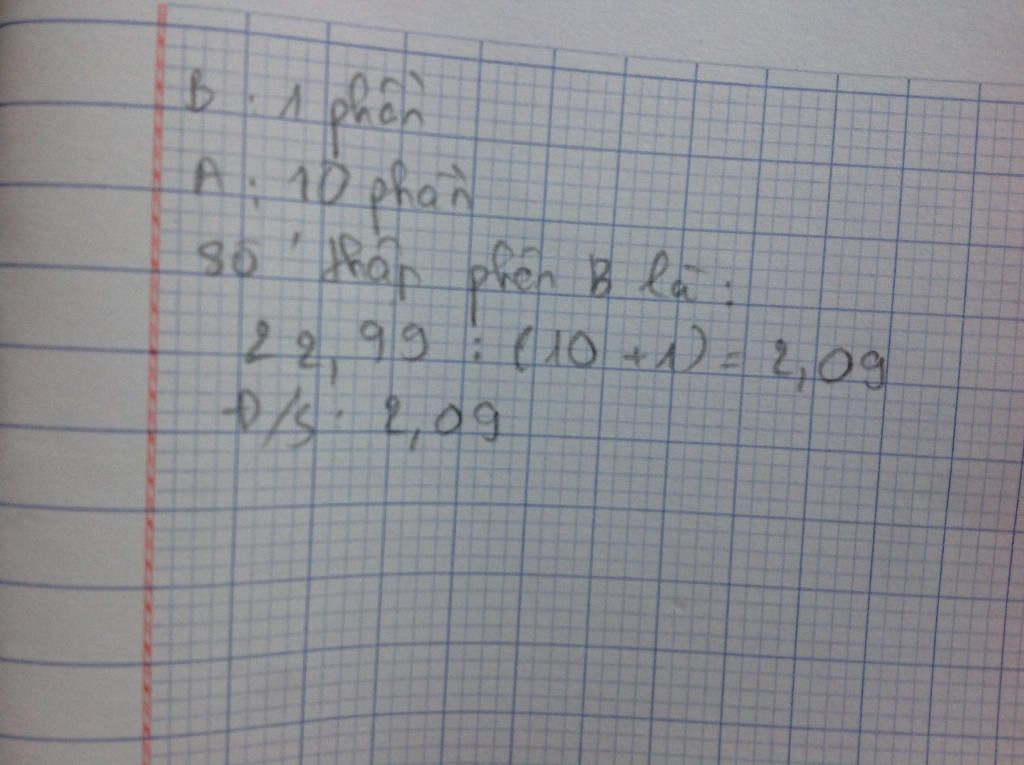 B : 1 phần
A : 10 phần
Số thập phân B là :
22,99 : (10 + 1) = 2,09
Đ/S : 2,09